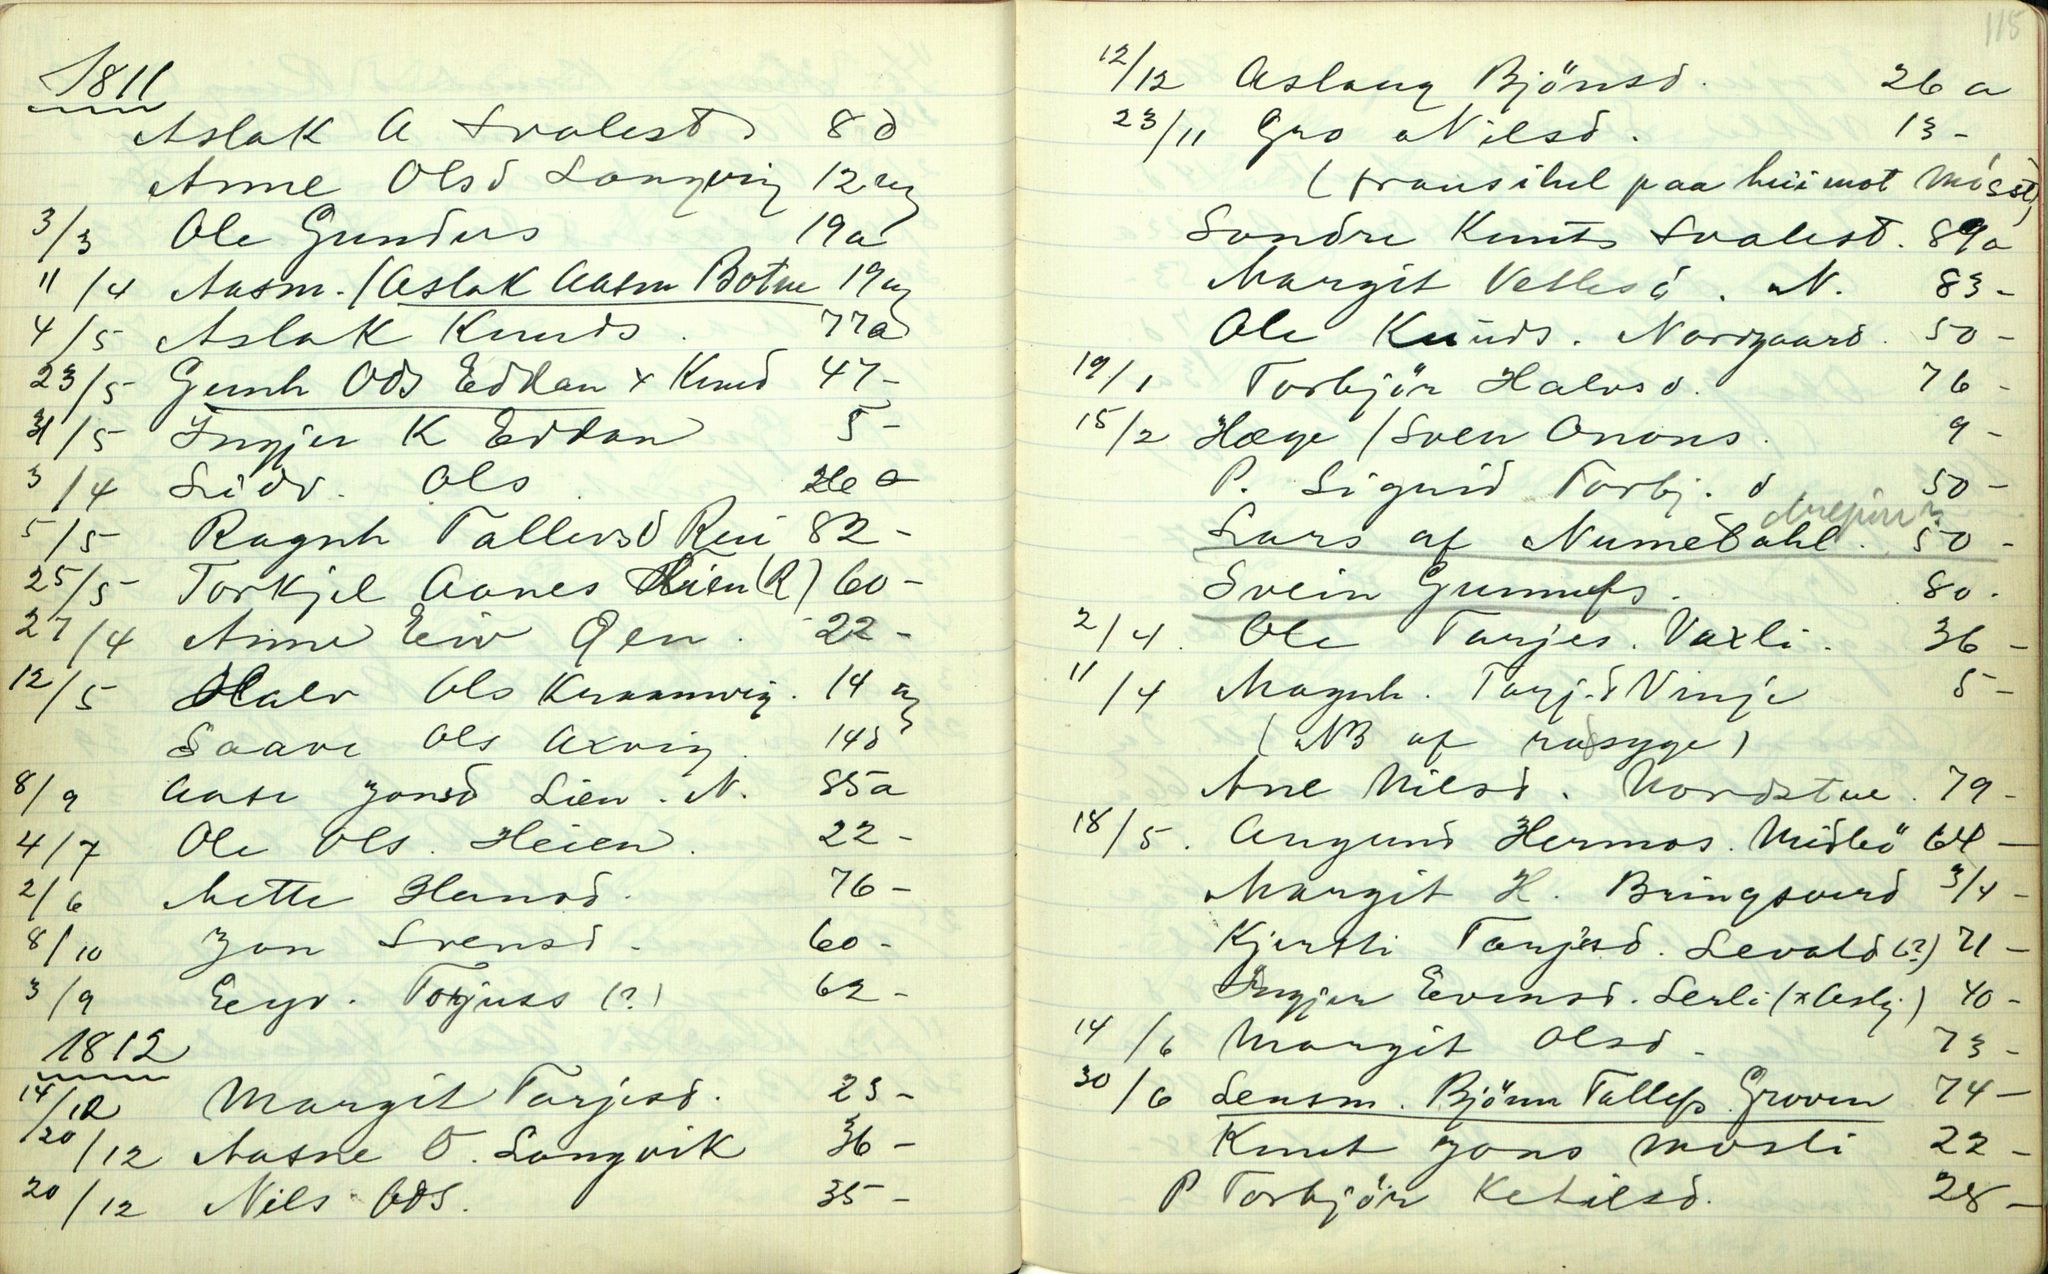 1811
Aslak A Svalest 8 d
Anne Olsd Langvig 12 ug
3/3 Ole Gunders 19 a
11/4 Aasm. (Aslak Aasm Botne 19 ug
4/5 Aslak Knuds. 77 a
23/5 Gunh Ods Eddan x Knud 47 -
31/5 Ingjer K Eddan 5 -
3/4 Ols 26 a
5/5 Ragnh Tallevsd Rui 82 -
25/5 Torkjel Aanes (R) 60 -
27/4 Anne Eiv 22 -
12/5 Halv Ols Kraamvig. 14 ug
Saave Ols Axvig. 14 d
8/9 Aase Jonsd Lien. N. 85 a
4/7 Ole Ols. Heien. 22 -
2/6 Mette Hansd. 76 -
8/10 Jon Svensd. 60 -
3/9 Torjuss (?) 62 -
1812
14/12 Margit Tarjesd. 23 -
20/12 Aasne O. Langvik 36 -
20/12 Nils Ods. 35 -
115
12/12 Aslaug Björnsd. 26 a
23/11 Gro Nilsd. 13 -
( paa hei mot Mösstr)
Sondre Knuts Svalest. 89 a
Margit Vetlesd. N. 83 -
Ole Knuds. Nordgaard. 50 -
19/1 Torbjör Halvsd. 76 -
15/2 Hæge / Sven Onons. 9 -
P. Sigrid Torbj. d 50 -
Lars af Numedahl. 50 -
Svein Gunnufs. 80.
2/4. Ole Tarjes. Vaxli. 36 -
11/4 Magnh. Tarj.d Vinje 5 -
(NB af rasyge)
Ane Nilsd. Nordstue. 79 -
18/5. Augund Hermos. Midbö 64 -
Margit H. Bringsverd 3/4 -
Kjersti Tarjesd. Levald (?) 71 -
Ingjer Evensd. Lerli (x Asbj) 40 -
14/6 Margit Olsd. 73 -
30/6 Lensm. Björn Tallefs Groven 74 -
Knut Jons Mosli 22 -
P Torbjör Ketilsd. 28 -